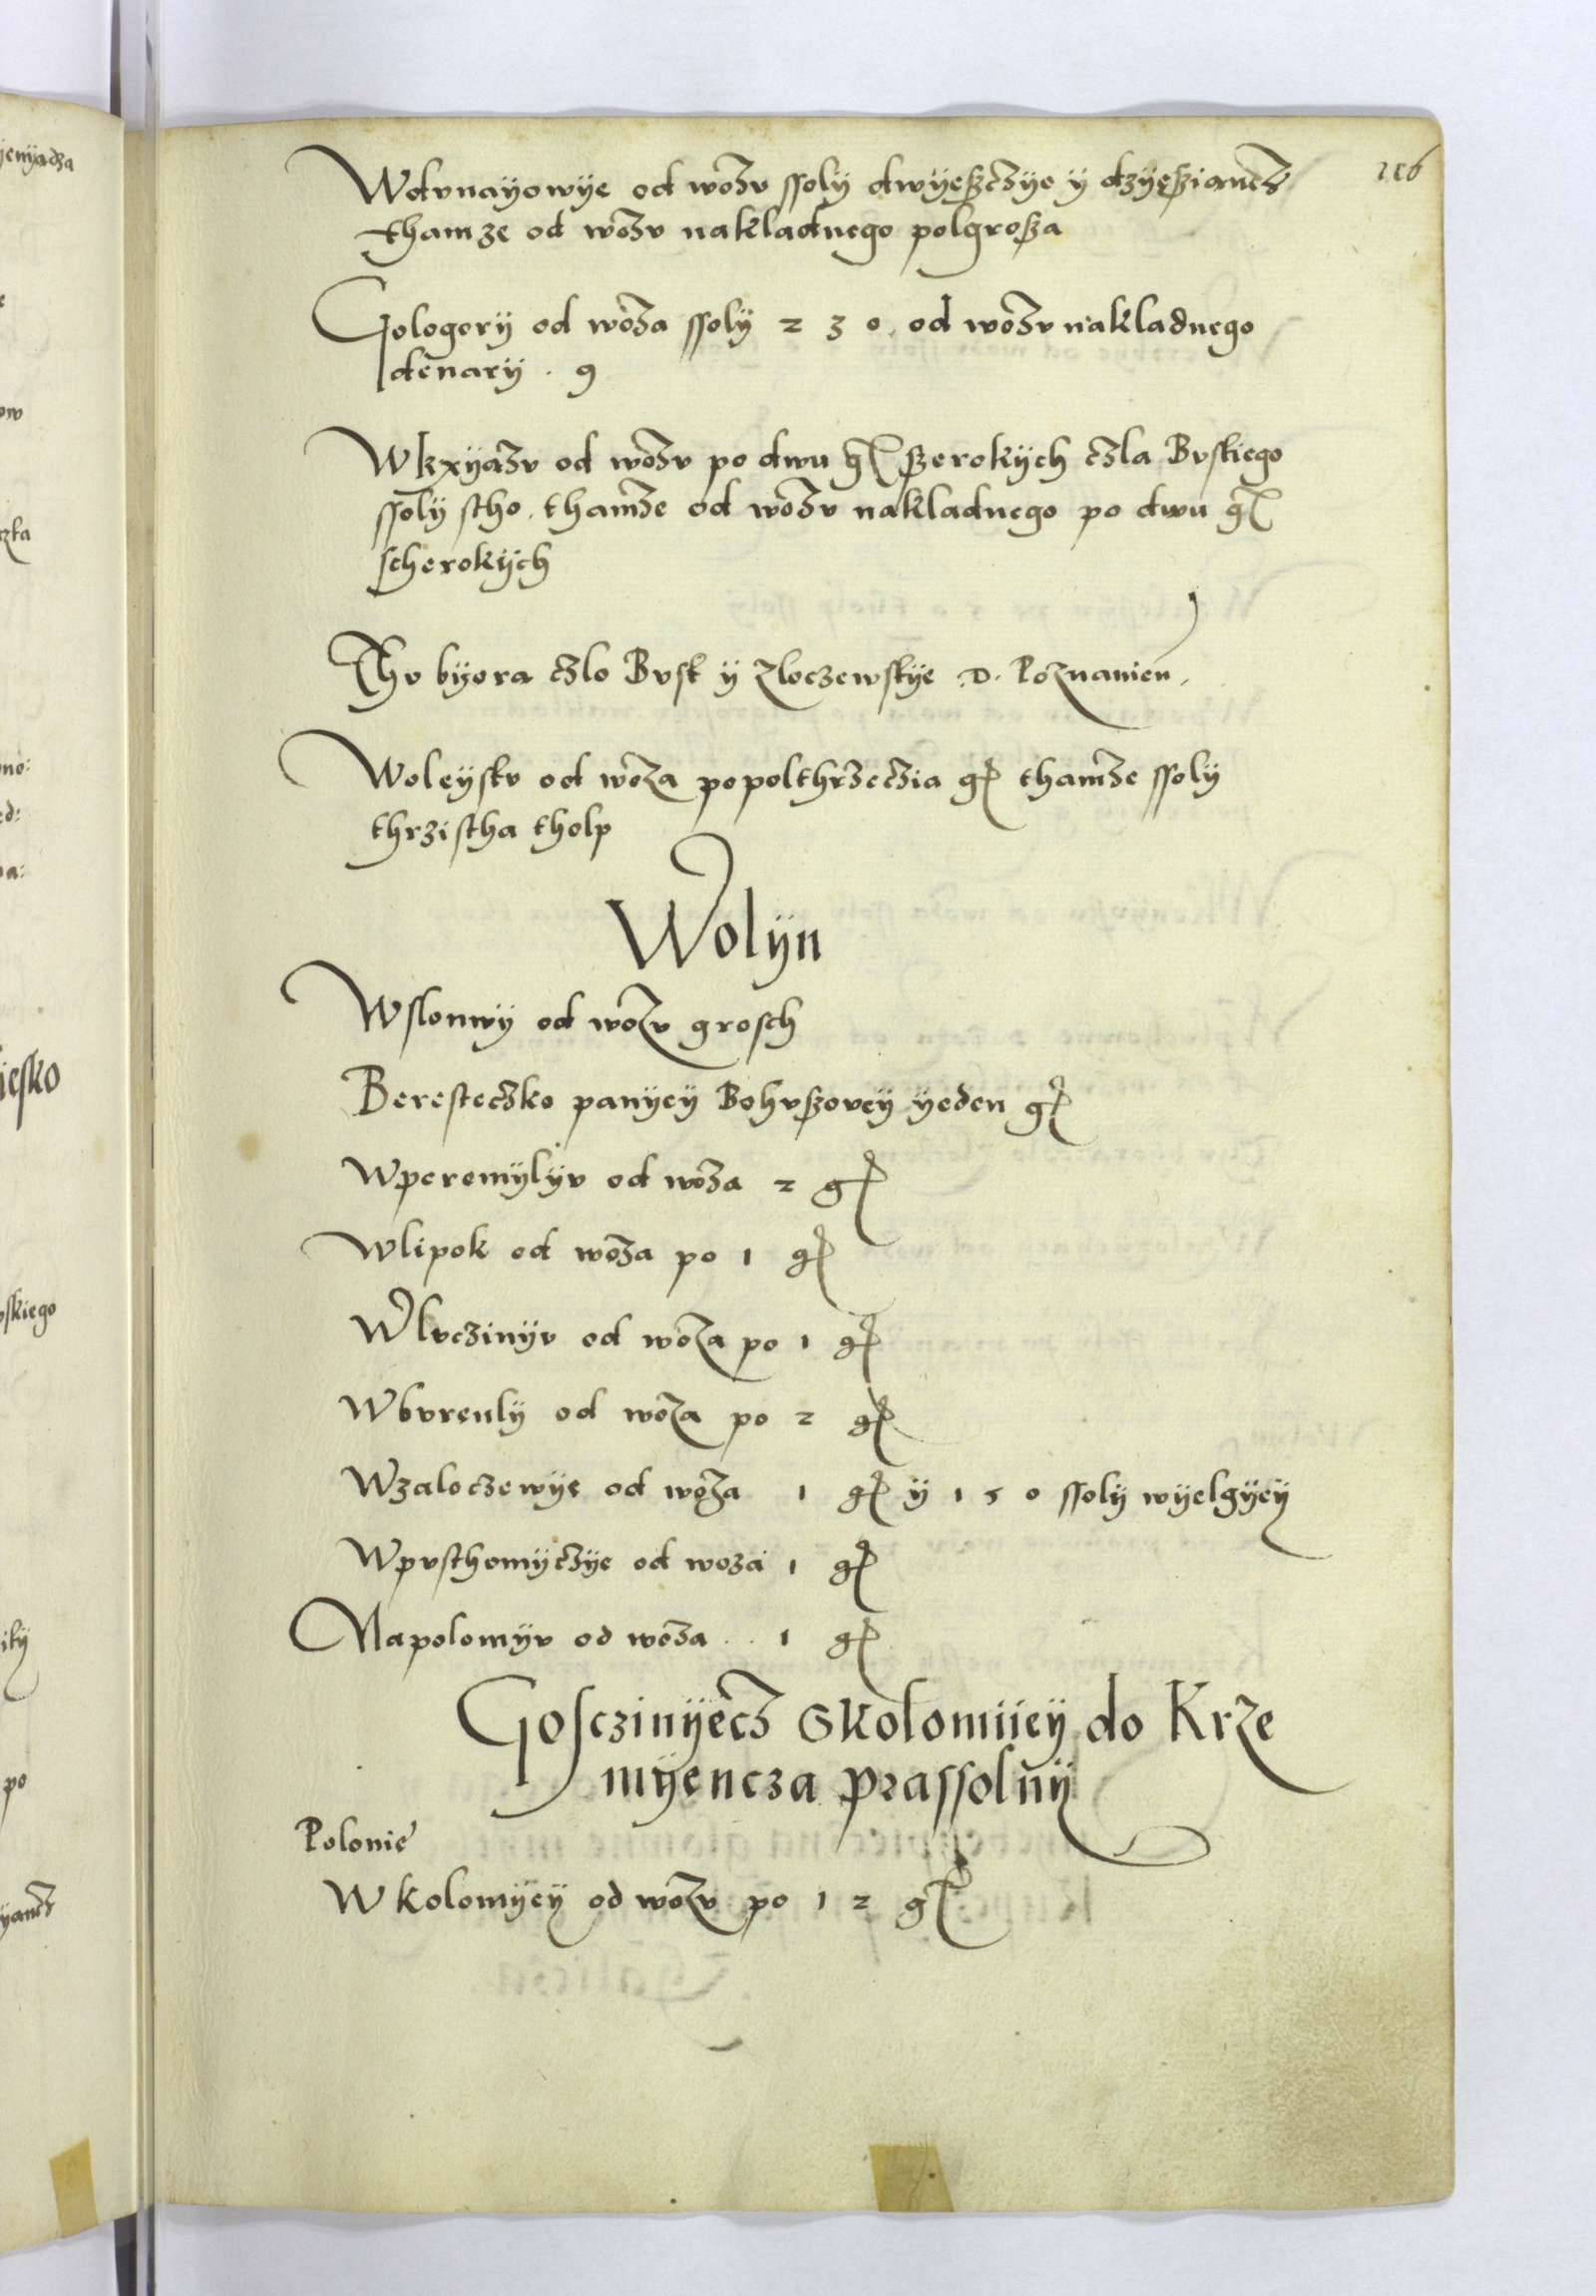 116
Wdvnayowye od wozv ssoly dwyeszczye y dzyesziancz
thamze od wozv nakladnego polgrosza
Gologory od woza ssoly 2 3 0. od wozv nakladnego
denary . 9
Wkxyązv od wozv po dwu gſ szerokych czla Bvskiego
ssoly stho. thamze od wozv nakladnego po dwu gſ
scherokych
Thv byora czlo Bvsk y zloczewskye .D. Poznanien.
Woleyskv od woza popolthrzeczia gſ thamze ssoly
thrzistha tholp
Wolyn
Wslonwy od wozv grosch
Beresteczko panyey Bohvszovey yeden gſ
Wperemylyv od woza 2 gſ
Wlipok od woza po 1 gſ
Wlvczinyv od woza po 1 gſ
Wbvrenly od woza po 2 gſ
Wzaloczewye od woza 1 gſ y 1 5 0 ssoly wyelgyey
Wpvsthomyczye od woza 1 gſ
Napolomyv od woza . . 1 gſ
Gosczinyecz Skolomiiey do Krze
myencza prassolny
Polonie
W kolomyey od wozv po 1 2 gſ